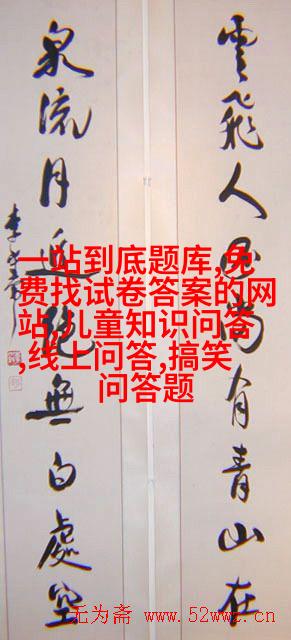 雲飛人尚有青山在
泉流月無白處空
一站到底题库,免
费找试卷答案的网
站,儿童知识问答
,线上问答,搞笑
问答题
无为斋 www.52wwz.cn